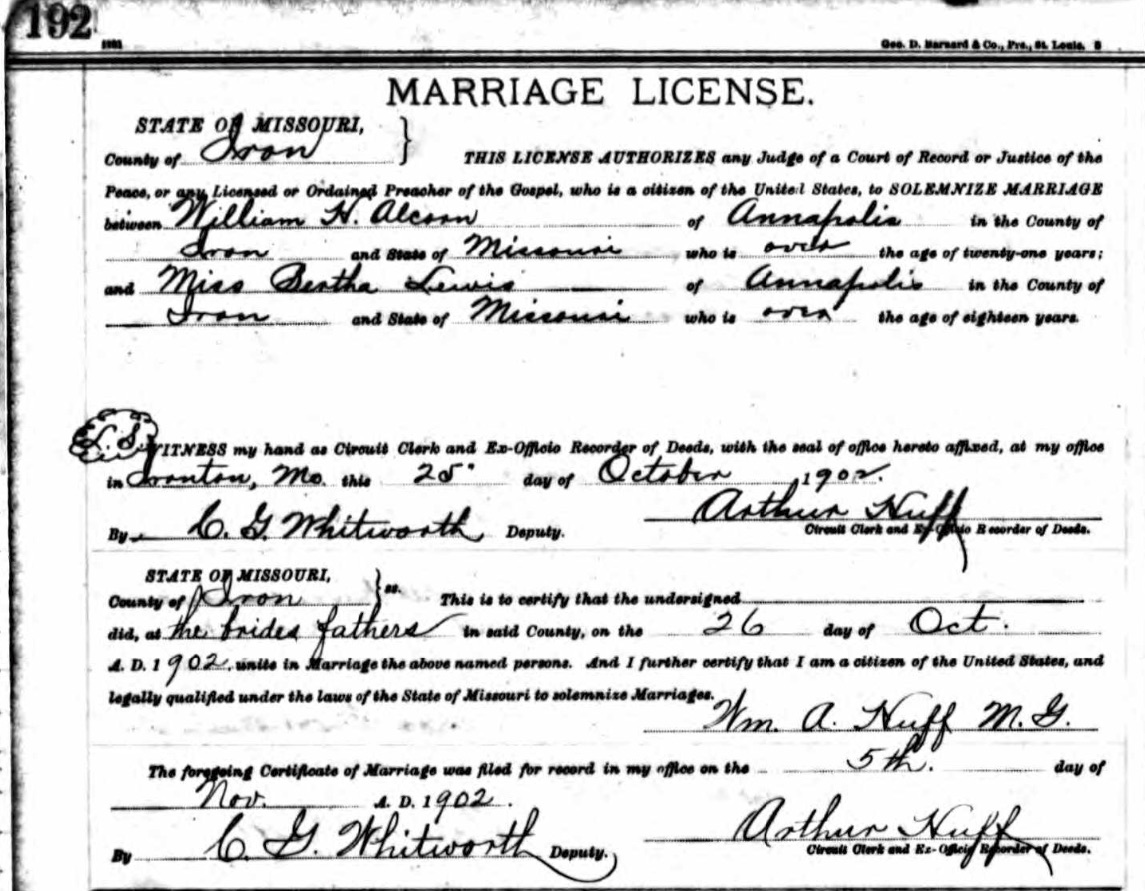 192
Geo. D. Barnard & Co., Prs., St. Louis.
MARRIAGE LICENSE.
STATE OF MISSOURI,
County of Iron
THIS LICENSE AUTHORIZES any Judge of a Court of Record or Justice of the
Peace, or any Licensed or Ordained Preacher of the Gospel, who is a citizen of the United States, to SOLEMNIZE MARRIAGE
between William H. Alcorn of Annapolis in the County of
Iron and State of Missouri who is over the age of twenty-one years;
and Miss Bertha Lewis of Annapolis in the County of
Iron and State of Missouri who is over the age of eighteen years.
L. S. WITNESS my hand as Circuit Clerk and Ex-Officio Recorder of Deeds, with the seal of office hereto affixed, at my office
in Ironton, Mo. this 25 day of October 1902.
Arthur Huff
By C. G. Whitworth Deputy. Circuit Clerk and Ex-Officio Recorder of Deeds.
STATE OF MISSOURI,
County of Iron ss. This is to certify that the undersigned
did, at the brides fathers in said County, on the 26 day of Oct.
A. D. 1902, unite in Marriage the above named persons. And I further certify that I am a citizen of the United States, and
legally qualified under the laws of the State of Missouri to solemnize Marriages.
Wm. A. Huff M. G.
The foregoing Certificate of Marriage was filed for record in my office on the 5th. day of
Nov. A. D. 1902.
Arthur Huff
By C. G. Whitworth Deputy. Circuit Clerk and Ex-Officio Recorder of Deeds.